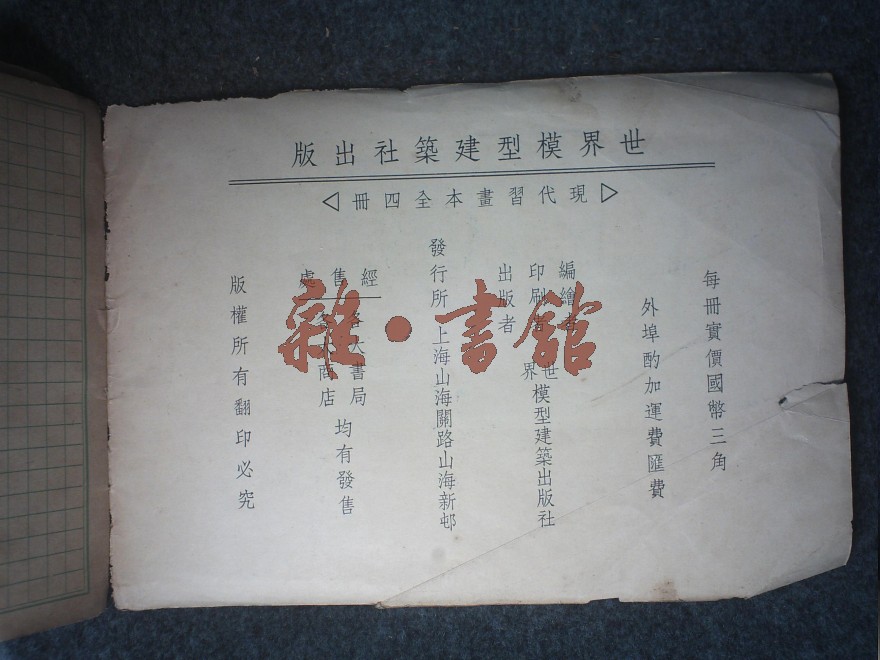 世界模型建築社出版
▷現代習畫本全四冊◁
每冊實價國幣三角
外埠酌加運費匯費
編繪者
印刷者
出版者
世界模型建築出版社
發行所 上海山海關路山海新邨
經售處
各大書局
商店
均有發售
版權所有翻印必究
雜·書館